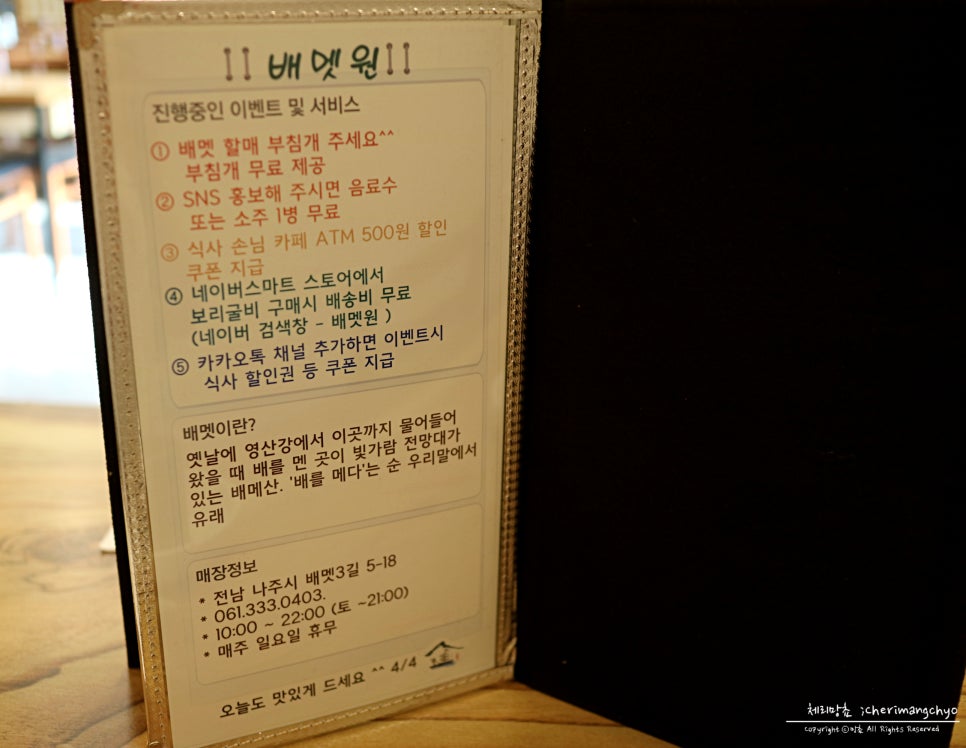 배멧원
진행중인 이벤트 및 서비스
① 배멧 할매 부침개 주세요^^
부침개 무료 제공
② SNS 홍보해 주시면 음료수
또는 소주 1병 무료
③ 식사 손님 카페 ATM 500원 할인
쿠폰 지급
④ 네이버스마트 스토어에서
보리굴비 구매시 배송비 무료
(네이버 검색창 - 배멧원 )
⑤ 카카오톡 채널 추가하면 이벤트시
식사 할인권 등 쿠폰 지급
배멧이란?
옛날에 영산강에서 이곳까지 물어들어
왔을 때 배를 멘 곳이 빛가람 전망대가
있는 배메산. '배를 메다'는 순 우리말에서
유래
매장정보
* 전남 나주시 배멧3길 5-18
* 061.333.0403.
* 10:00 ~ 22:00 (토 ~21:00)
* 매주 일요일 휴무
오늘도 맛있게 드세요 ^^ 4/4
체리망쵸 ;cherimangchyo
Copyright ⓒ망쵸 All Rights Reserved